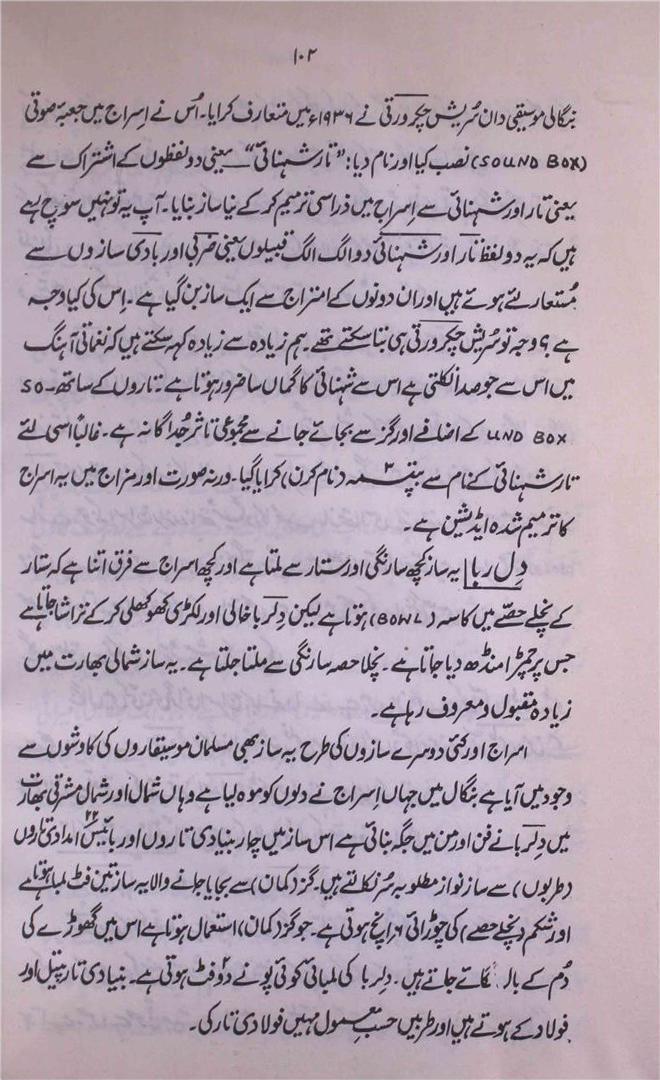 ۱۰۲
بنگالی موسیقی دان سُریش چکرورتی نے ۱۹۳۶ء میں متعارف کرایا۔ اُس نے اِسراج میں جعبۂ صوتی
(SOUND BOX) نصب کیا اور نام دیا: "تار شہنائی" — یعنی دو لفظوں کے اشتراک سے
یعنی تار اور شہنائی سے اِسراج میں ذراسی ترمیم کر کے نیا ساز بنایا۔ آپ یہ تو نہیں سوچ رہے
ہیں کہ یہ دو لفظ تار اور شہنائی دو الگ الگ قبیلوں یعنی ضربی اور بادی سازوں سے
مُستعار لئے ہوئے ہیں اور ان دونوں کے امتزاج سے ایک ساز بن گیا ہے۔ اِس کی کیا وجہ
ہے؟ وجہ تو سُریش چکرورتی ہی بتا سکتے تھے۔ ہم زیادہ سے زیادہ کہہ سکتے ہیں کہ نغماتی آہنگ
میں اس سے جو صدا نکلتی ہے اس سے شہنائی کا گماں سا ضرور ہوتا ہے۔ تاروں کے ساتھ SO-
UND BOX کے اضافے اور گز سے بجائے جانے سے مجموعی تاثر جُداگانہ ہے۔ غالباً اسی لئے
تار شہنائی کے نام سے بپتسمہ (نام کرن) کرایا گیا۔ ورنہ صورت اور مزاج میں یہ اسراج
کا ترمیم شدہ ایڈیشن ہے۔
دِل رُبا یہ ساز کچھ سارنگی اور ستار سے ملتا ہے اور کچھ اسراج سے فرق اتنا ہے کہ ستار
کے نچلے حصّے میں کاسہ (BOWL) ہوتا ہے لیکن دِلربا خالی اور لکڑی کھوکھلی کر کے تراشا جاتا ہے
جس پر چمڑا منڈھ دیا جاتا ہے۔ نچلا حصہ سارنگی سے ملتا جلتا ہے۔ یہ ساز شمالی بھارت میں
زیادہ مقبول و معروف رہا ہے۔
اسراج اور کئی دوسرے سازوں کی طرح یہ ساز بھی مسلمان موسیقاروں کی کاوشوں سے
وجود میں آیا ہے بنگال میں جہاں اِسراج نے دلوں کو موہ لیا ہے وہاں شمال اور شمال مشرقی بھارت
میں دِلربا نے فن اور من میں جگہ بنائی ہے اس ساز میں چار بنیادی تاروں اور بائیس ۲۲ امدادی تاروں
(طربوں) سے ساز نواز مطلوبہ سُر نکالتے ہیں۔ گز (کمان) سے بجایا جانے والا یہ ساز تین فٹ لمبا ہوتا ہے
اور شکم (نچلے حصے) کی چوڑائی ۶ انچ ہوتی ہے۔ جو گز (کمان) استعمال ہوتا ہے اس میں گھوڑے کی
دُم کے بال لگائے جاتے ہیں۔ دِلربا کی لمبائی کوئی پونے دو فٹ ہوتی ہے۔ بنیادی تار پیتل اور
فولاد کے ہوتے ہیں اور طربیں حسب معمول مہین فولادی تار کی۔